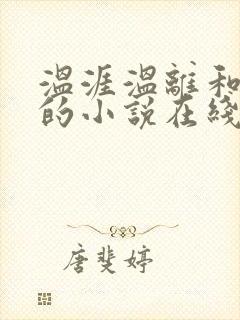 温涯温離和
的小说在綫
唐斐婷